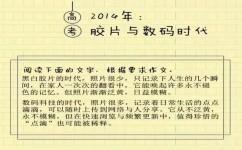 高考
2014年：
胶片与数码时代
阅读下面的文字，根据要求作文。
黑白胶片的时代，照片很少，只记录下人生的几个瞬
间，在家人一次次的翻看中，它能唤起许多永不褪
色的记忆。但照片渐渐泛黄，日益模糊。
数码科技的时代，照片很多，记录着日常生活的点点
滴滴，可以随时上传到网络与人分享。它从不泛黄，
永不模糊，但在快速浏览与频繁更新中，值得珍惜的
“点滴”也可能被稀释。